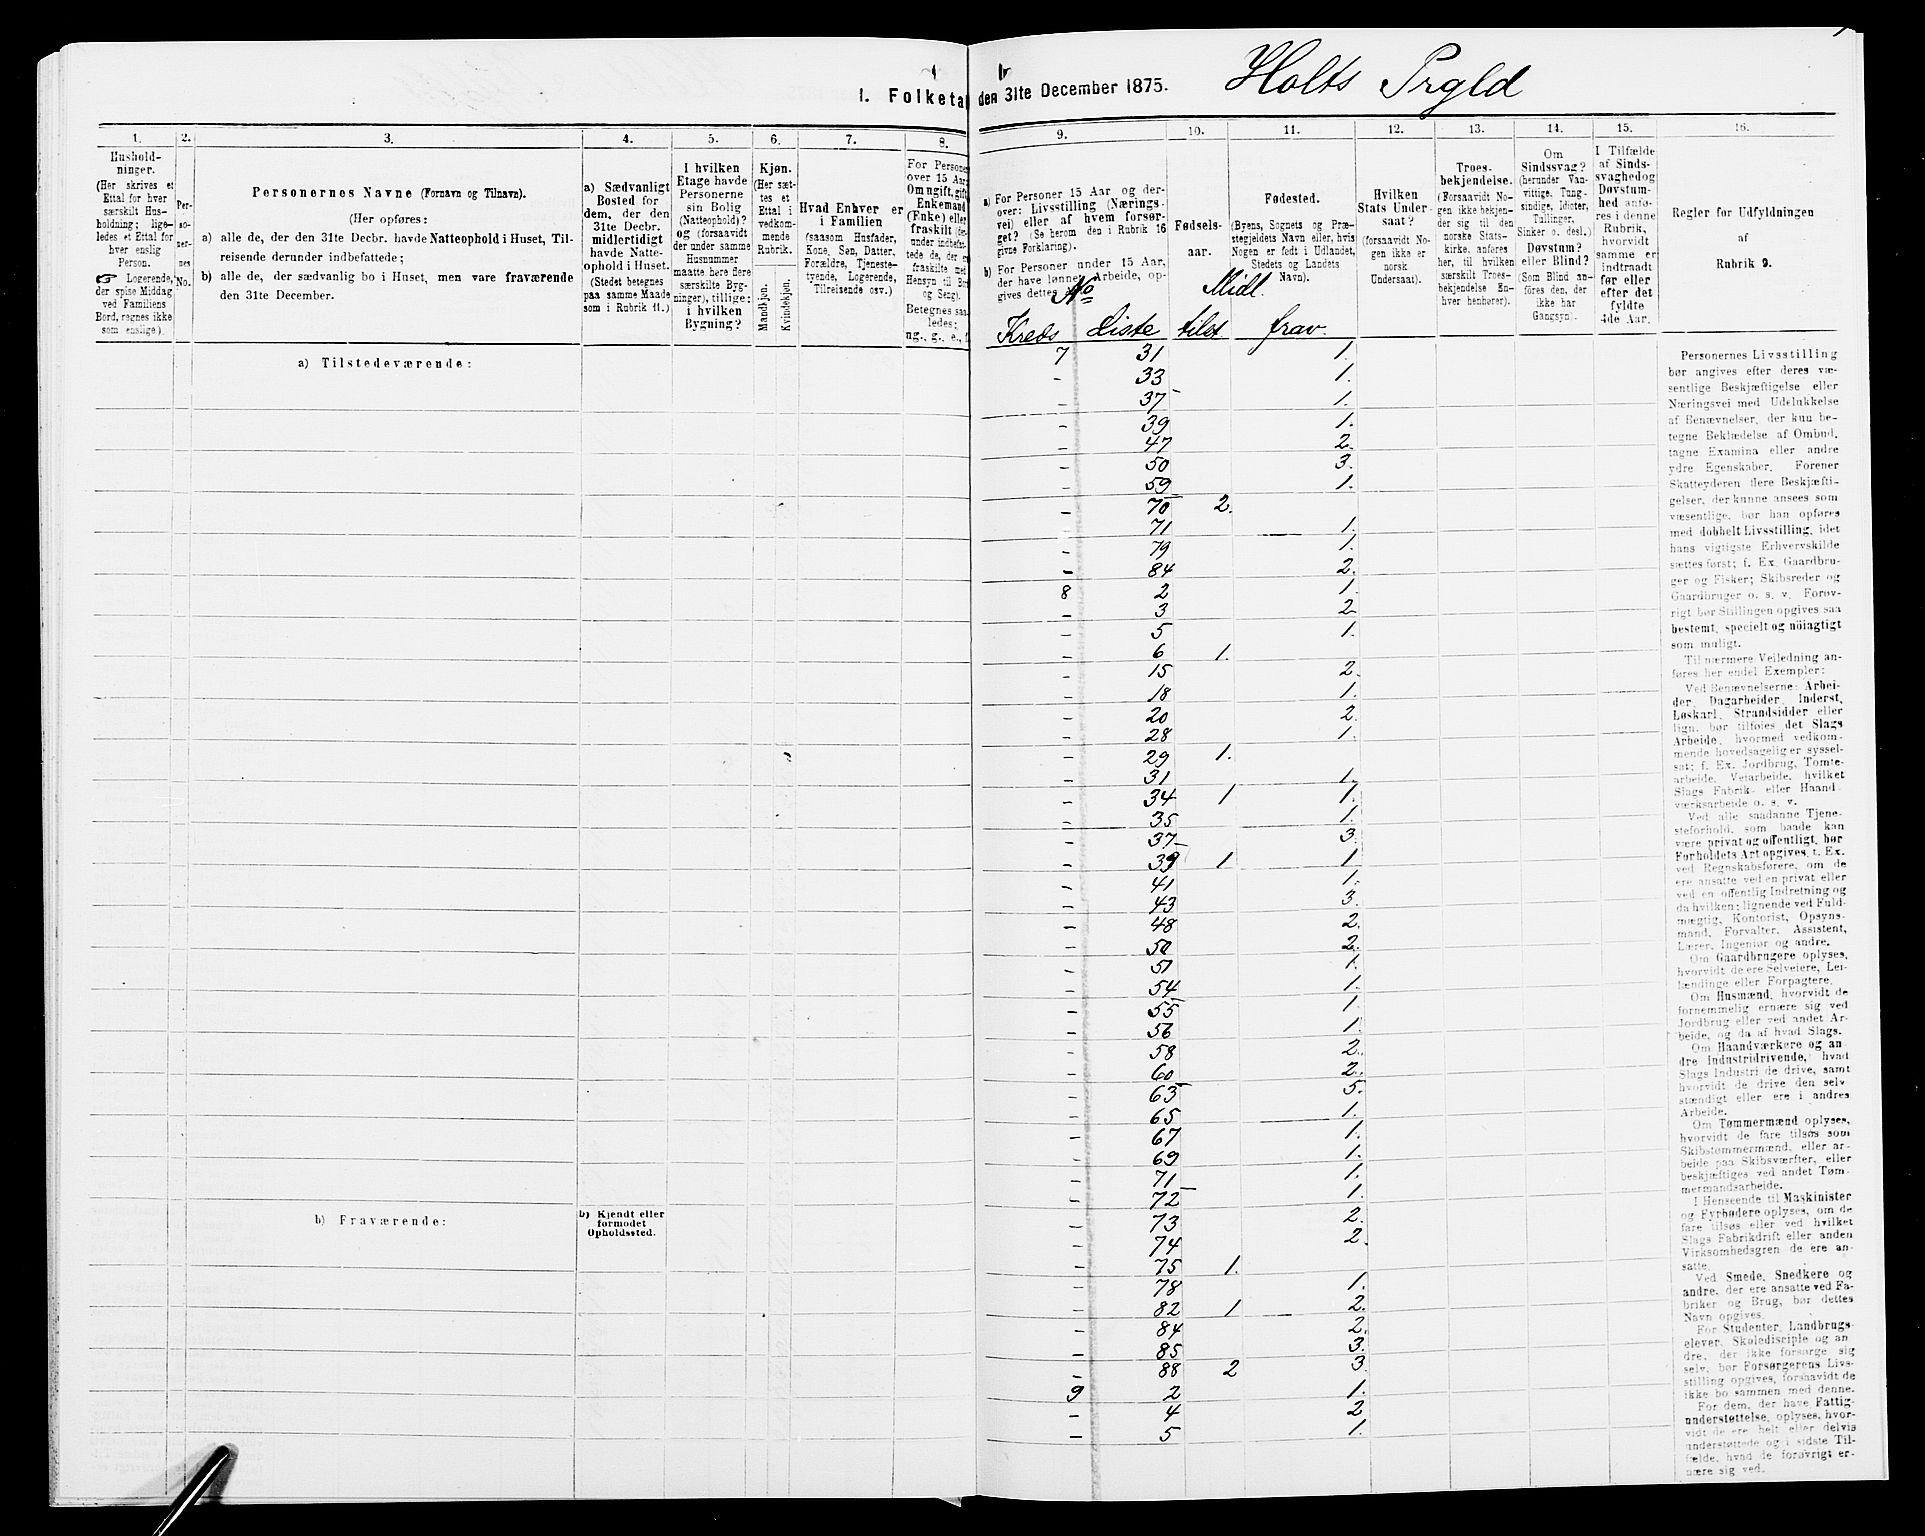 1. Folketa
den 31te December 1875.
Holts Prgld
1.
2.
3.
4.
5.
6.
7.
8.
9.
10.
11.
12.
13.
14.
15.
16.
Hushold-
ninger.
(Her skrives et
Ettal for hver
særskilt Hus-
holdning; lige-
ledes et Ettal for
hver enslig
Person.
☞ Logerende,
der spise Middag
ved Familiens
Bord, regnes ikke
som enslige).
Per-
so-
ner-
nes
No.
Personernes Navne (Fornavn og Tilnavn).
(Her opføres:
a) alle de, der den 31te Decbr. havde Natteophold i Huset, Til-
reisende derunder indbefattede;
b) alle de, der sædvanlig bo i Huset, men vare fraværende
den 31te December.
a) Sædvanligt
Bosted for
dem, der den
31te Decbr.
midlertidigt
havde Natte-
ophold i Huset.
(Stedet betegnes
paa samme Maade
som i Rubrik 11.)
I hvilken
Etage havde
Personerne
sin Bolig
(Natteophold)?
og (forsaavidt
der under samme
Husnummer
maatte høre flere
særskilte Byg-
ninger), tillige:
i hvilken
Bygning?
Kjøn.
(Her sæt-
tes et
Ettal i
vedkom-
mende
Rubrik.
Mandkjøn.
Kvindekjøn.
Hvad Enhver er
i Familien
(saasom Husfader,
Kone, Søn, Datter,
Forældre, Tjeneste-
tyende, Logerende,
Tilreisende osv.)
For Persone
over 15 Aar
Om ugift, gift
Enkemand
(Enke) eller
fraskilt (he-
runder indbefat-
tede de, der e
fraskilte med
Hensyn til B
og Seng).
Betegnes saa-
ledes:
ng., g., e., f.
a) For Personer 15 Aar og der-
over: Livsstilling (Nærings-
vei) eller af hvem forsør-
get? (Se herom den i Rubrik 16
givne Forklaring).
b) For Personer under 15 Aar,
der have lønnet Arbeide, op-
gives dettes
Fødsels-
aar.
Fødested.
(Byens, Sognets og Præ-
stegjeldets Navn eller, hvis
Nogen er født i Udlandet,
Stedets og Landets
Navn).
Hvilken
Stats Under-
saat?
(forsaavidt No-
gen ikke er
norsk
Undersaat).
Troes-
bekjendelse.
(Forsaavidt No-
gen ikke bekjen-
der sig til den
norske Stats-
kirke, anføres
her, til hvilken
særskilt Troes-
bekjendelse En-
hver henhører).
Om
Sindssvag?
(herunder Van-
vittige, Tung-
sindige, Idioter,
Tullinger,
Sinker o. desl.)
Døvstum?
eller Blind?
(Som Blind an-
føres den, der
ikke har
Gangsyn).
I Tilfælde
af Sinds-
svaghed og
Døvstum-
hed anfø-
res i denne
Rubrik,
hvorvidt
samme er
indtraadt
før eller
efter det
fyldte
4de Aar.
Regler for Udfyldningen
af
Rubrik 9.
No Midl.
Kreds Liste tilst frav.
a) Tilstedeværende:
7 31 1.
- 33 1.
- 37 1.
- 39 1.
- 47 2.
- 50 3.
- 59 1.
- 70 2.
- 71 1.
- 79 1.
- 84 2.
8 2 1.
- 3 2
- 5 1.
- 6 1.
- 15 2.
- 18 1.
- 20 2.
- 28 1.
- 29 1.
- 31 1.
- 34 1 1.
- 35 1.
- 37 3.
- 39 1 1
- 41 1.
- 43 3.
- 48 2.
- 50 2.
- 51 1.
- 54 1.
- 55 1.
- 56 1.
- 58 2.
- 60 2.
- 63 5.
- 65 1.
- 67 1.
- 69 1.
- 71 1.
- 72 1.
- 73 2.
- 74 2.
- 75 1.
- 78 1.
- 82 1 2.
- 84 2.
- 85 3.
- 88 2 3
9 2 1.
- 4 2
- 5 1.
b) Fraværende:
b) Kjendt eller
formodet
Opholdssted.
Personernes Livsstilling
bør angives efter deres væ-
sentlige Beskjæftigelse eller
Næringsvei med Udelukkelse
af Benævnelser, der kun be-
tegne Beklædelse af Ombud,
tagne Examina eller andre
ydre Egenskaber. Forener
Skatteyderen flere Beskjæfti-
gelser, der kunne ansees som
væsentlige, bør han opføres
med dobbelt Livsstilling, idet
hans vigtigste Erhvervskilde
sættes først; f. Ex. Gaardbru-
ger og Fisker; Skibsreder og
Gaardbruger o. s. v. Forøv-
rigt bør Stillingen opgives saa
bestemt, specielt og nöiagtigt
som muligt.
Til nærmere Veiledning an-
føres her endel Exempler:
Ved Benævnelserne: Arbei-
der, Dagarbeider, Inderst,
Løskarl, Strandsidder eller
lign. bør tilføies det Slags
Arbeide, hvormed vedkom-
mende hovedsagelig er syssel-
sat; f. Ex. Jordbrug, Tomte-
arbeide, Veiarbeide, hvilket
Slags Fabrik- eller Haand-
værksarbeide o. s. v.
Ved alle saadanne Tjene-
steforhold, som baade kan
være privat og offentligt, bør
Forholdets Art opgives, t. Ex.
ved Regnskabsførere, om de
ere ansatte ved en privat eller
ved en offentlig Indretning og
da hvilken; lignende ved Fuld-
mægtig, Kontorist, Opsyns-
mand, Forvalter, Assistent,
Lærer, Ingeniør og andre.
Om Gaardbrugere oplyses,
hvorvidt de ere Selveiere, Lei-
lændinge eller Forpagtere.
Om Husmænd, hvorvidt de
fornemmelig ernære sig ved
Jordbrug eller ved andet Ar-
beide, og da af hvad Slags.
Om Haandværkere og an-
dre Industridrivende, hvad
Slags Industri de drive, samt
hvorvidt de drive den selv
stændigt eller ere i andres
Arbeide.
Om Tømmermænd oplyses,
hvorvidt de fare tilsøs som
Skibstømmermænd, eller ar-
beide paa Skibsværfter, eller
beskjæftiges ved andet Tøm-
mermandsarbeide.
I Henseende til Maskinister
og Fyrbødere oplyses, om de
fare tilsøs eller ved hvilket
Slags Fabrikdrift eller anden
Virksomhedsgren de ere an-
satte.
Ved Smede, Snedkere og
andre, der ere ansatte ved Fa-
briker og Brug, bør dettes
Navn opgives.
For Studenter, Landbrugs-
elever, Skoledisciple og an
dre, der ikke forsørge sig
selv, bør Forsørgerens Livs-
stilling opgives, forsaavidt de
ikke bo sammen med denne.
For dem, der have Fattig-
understøttelse, oplyses, hvor-
vidt de ere helt eller delvis
understøttede og i sidste Til-
fælde, hvad de forøvrigt er-
nære sig ved.